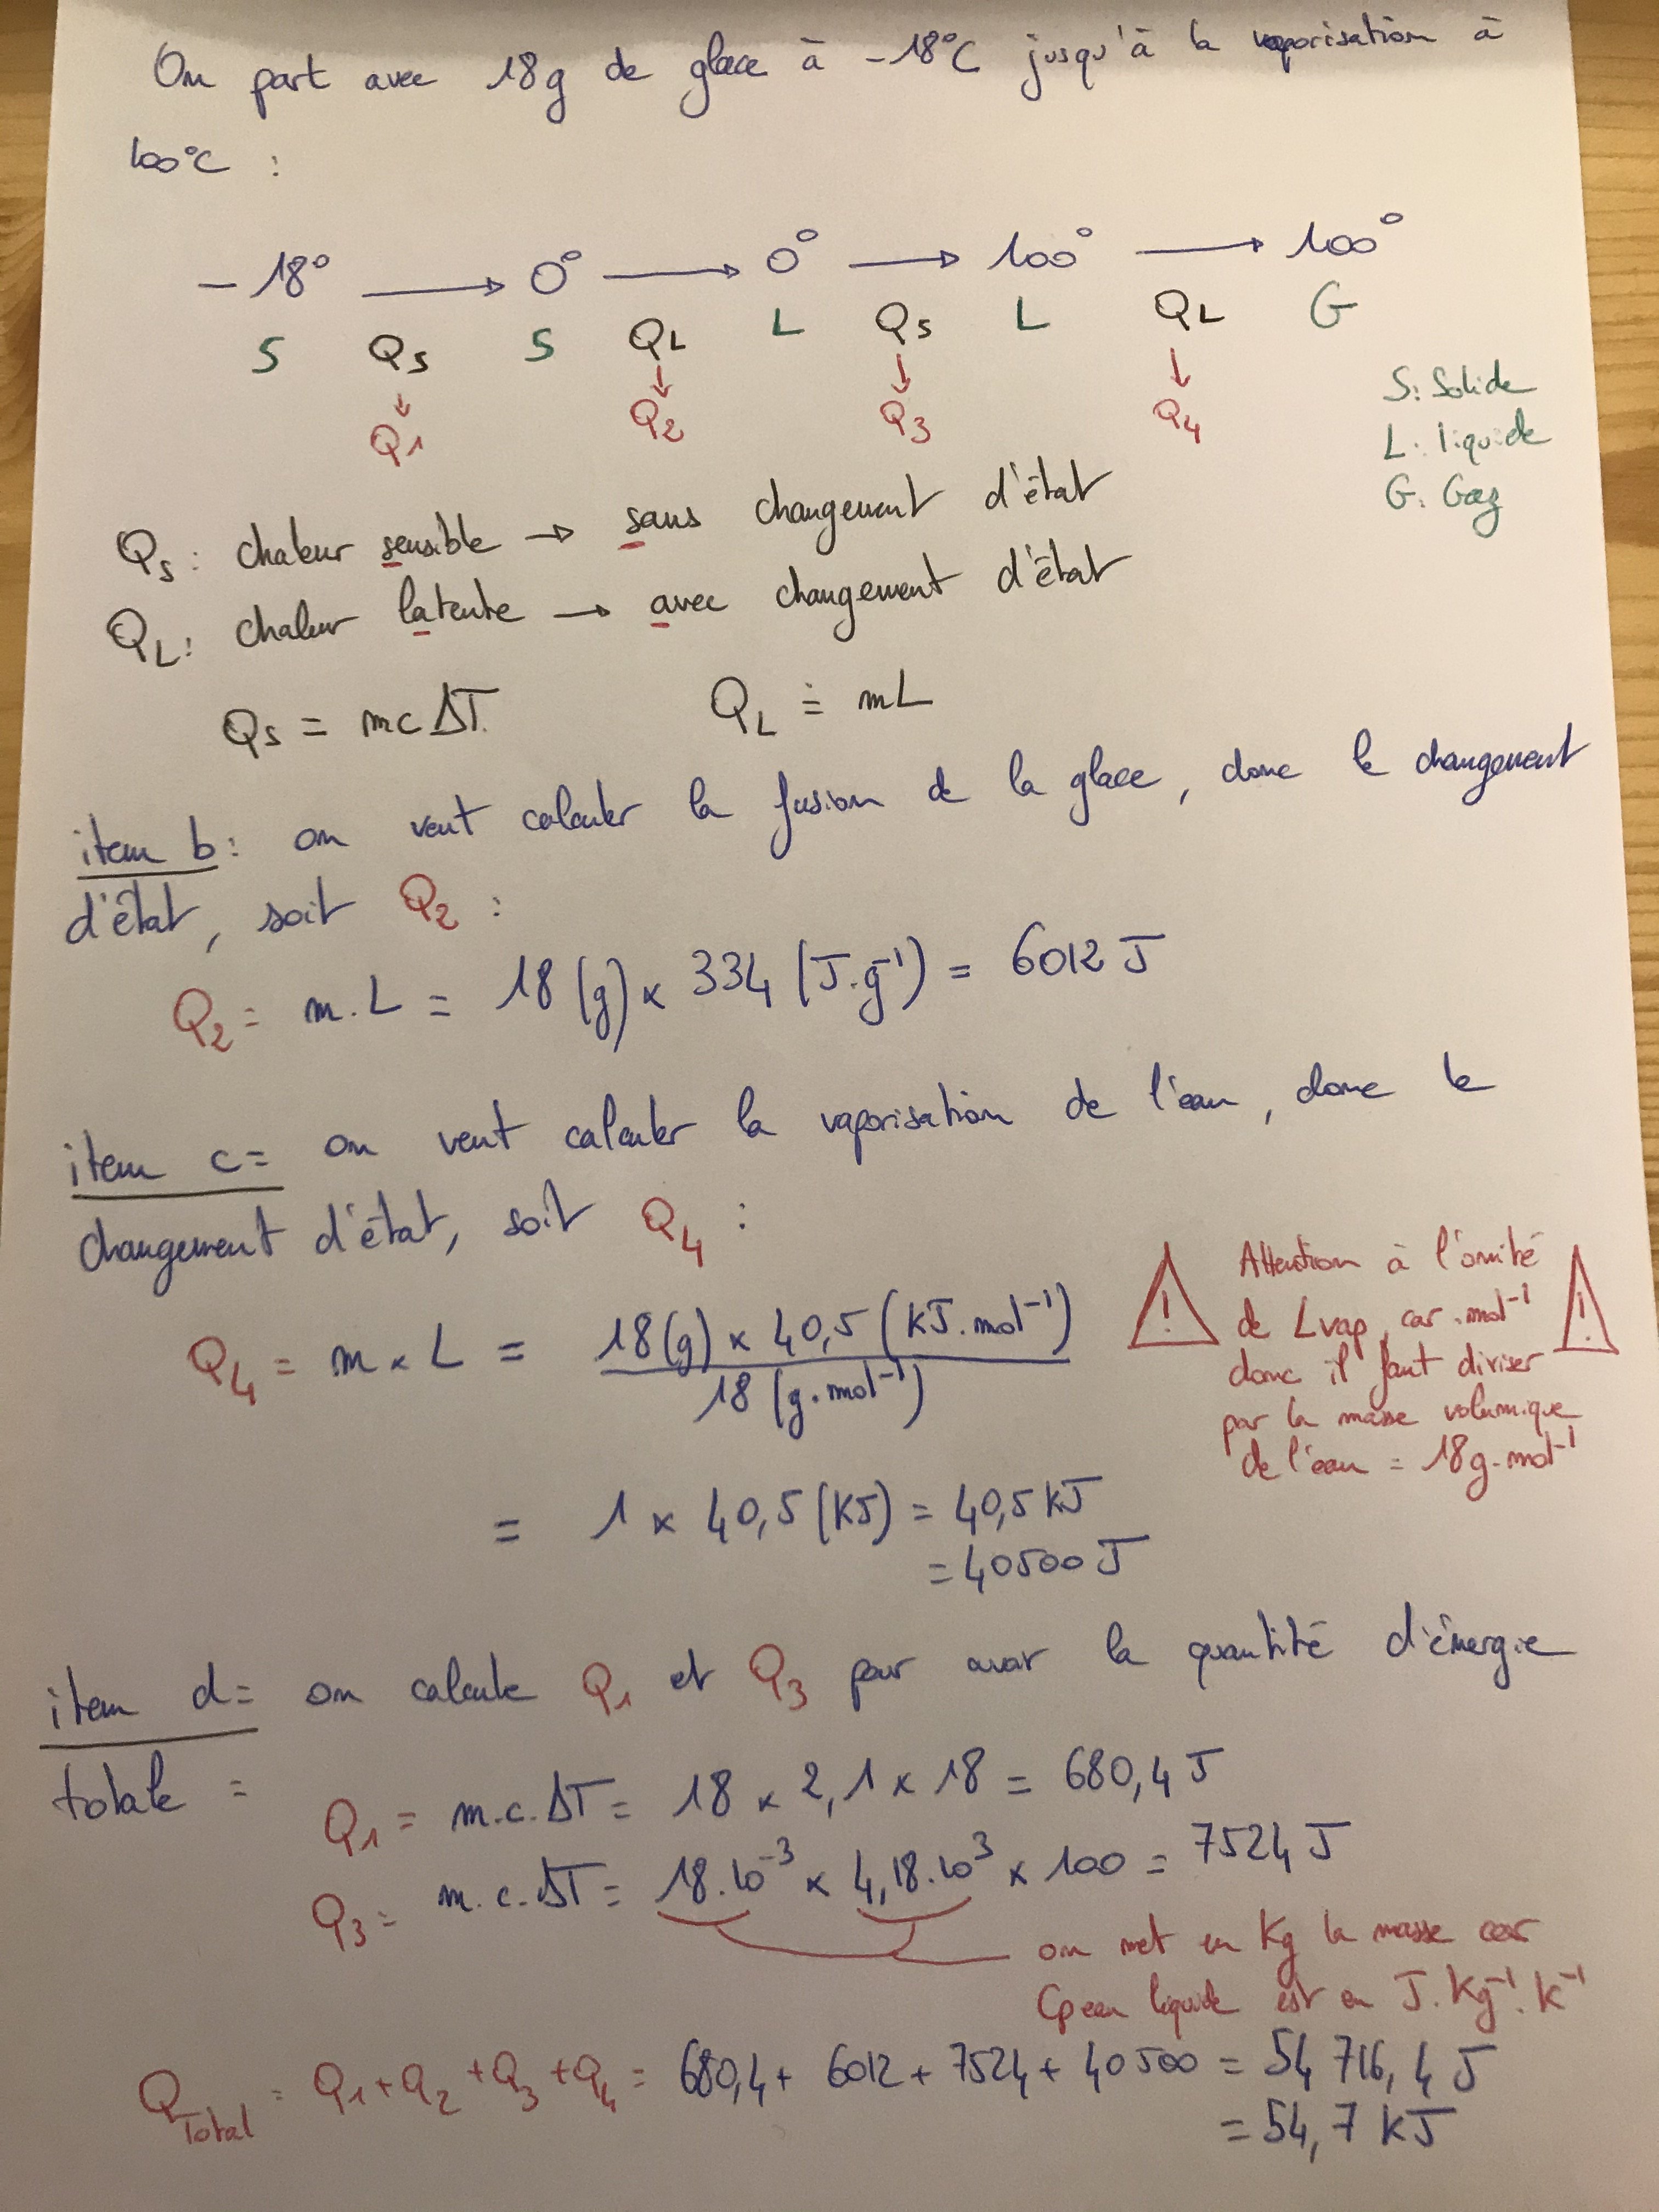 On part avec 18g de glace à -18°C jusqu'à la vaporisation à
100°C :
- 18° → 0° → 0° → 100° → 100°
S Qs S QL L Qs L QL G
↓ ↓ ↓ ↓
Q1 Q2 Q3 Q4
S: Solide
L: liquide
G: Gaz
Qs: chaleur sensible → sans changement d'état
QL: chaleur latente → avec changement d'état
Qs = mcΔT QL = mL
item b: on veut calculer la fusion de la glace, donc le changement
d'état, soit Q2 :
Q2 = m.L = 18 (g) × 334 (J.g⁻¹) = 6012 J
item c= on veut calculer la vaporisation de l'eau, donc le
changement d'état, soit Q4 :
Q4 = m × L = 18(g) × 40,5 (kJ.mol⁻¹)
18 (g.mol⁻¹)
! Attention à l'unité !
de Lvap, car .mol⁻¹
donc il faut diviser
par la masse volumique
de l'eau = 18g.mol⁻¹
= 1 × 40,5 (KJ) = 40,5 kJ
= 40500 J
item d= on calcule Q1 et Q3 pour avoir la quantité d'énergie
totale =
Q1 = m.c.ΔT = 18 × 2,1 × 18 = 680,4 J
Q3 = m.c.ΔT = 18.10⁻³ × 4,18.10³ × 100 = 7524 J
on met en Kg la masse car
Cp eau liquide est en J.Kg⁻¹.K⁻¹
QTotal = Q1 + Q2 + Q3 + Q4 = 680,4 + 6012 + 7524 + 40500 = 54 716,4 J
= 54,7 KJ